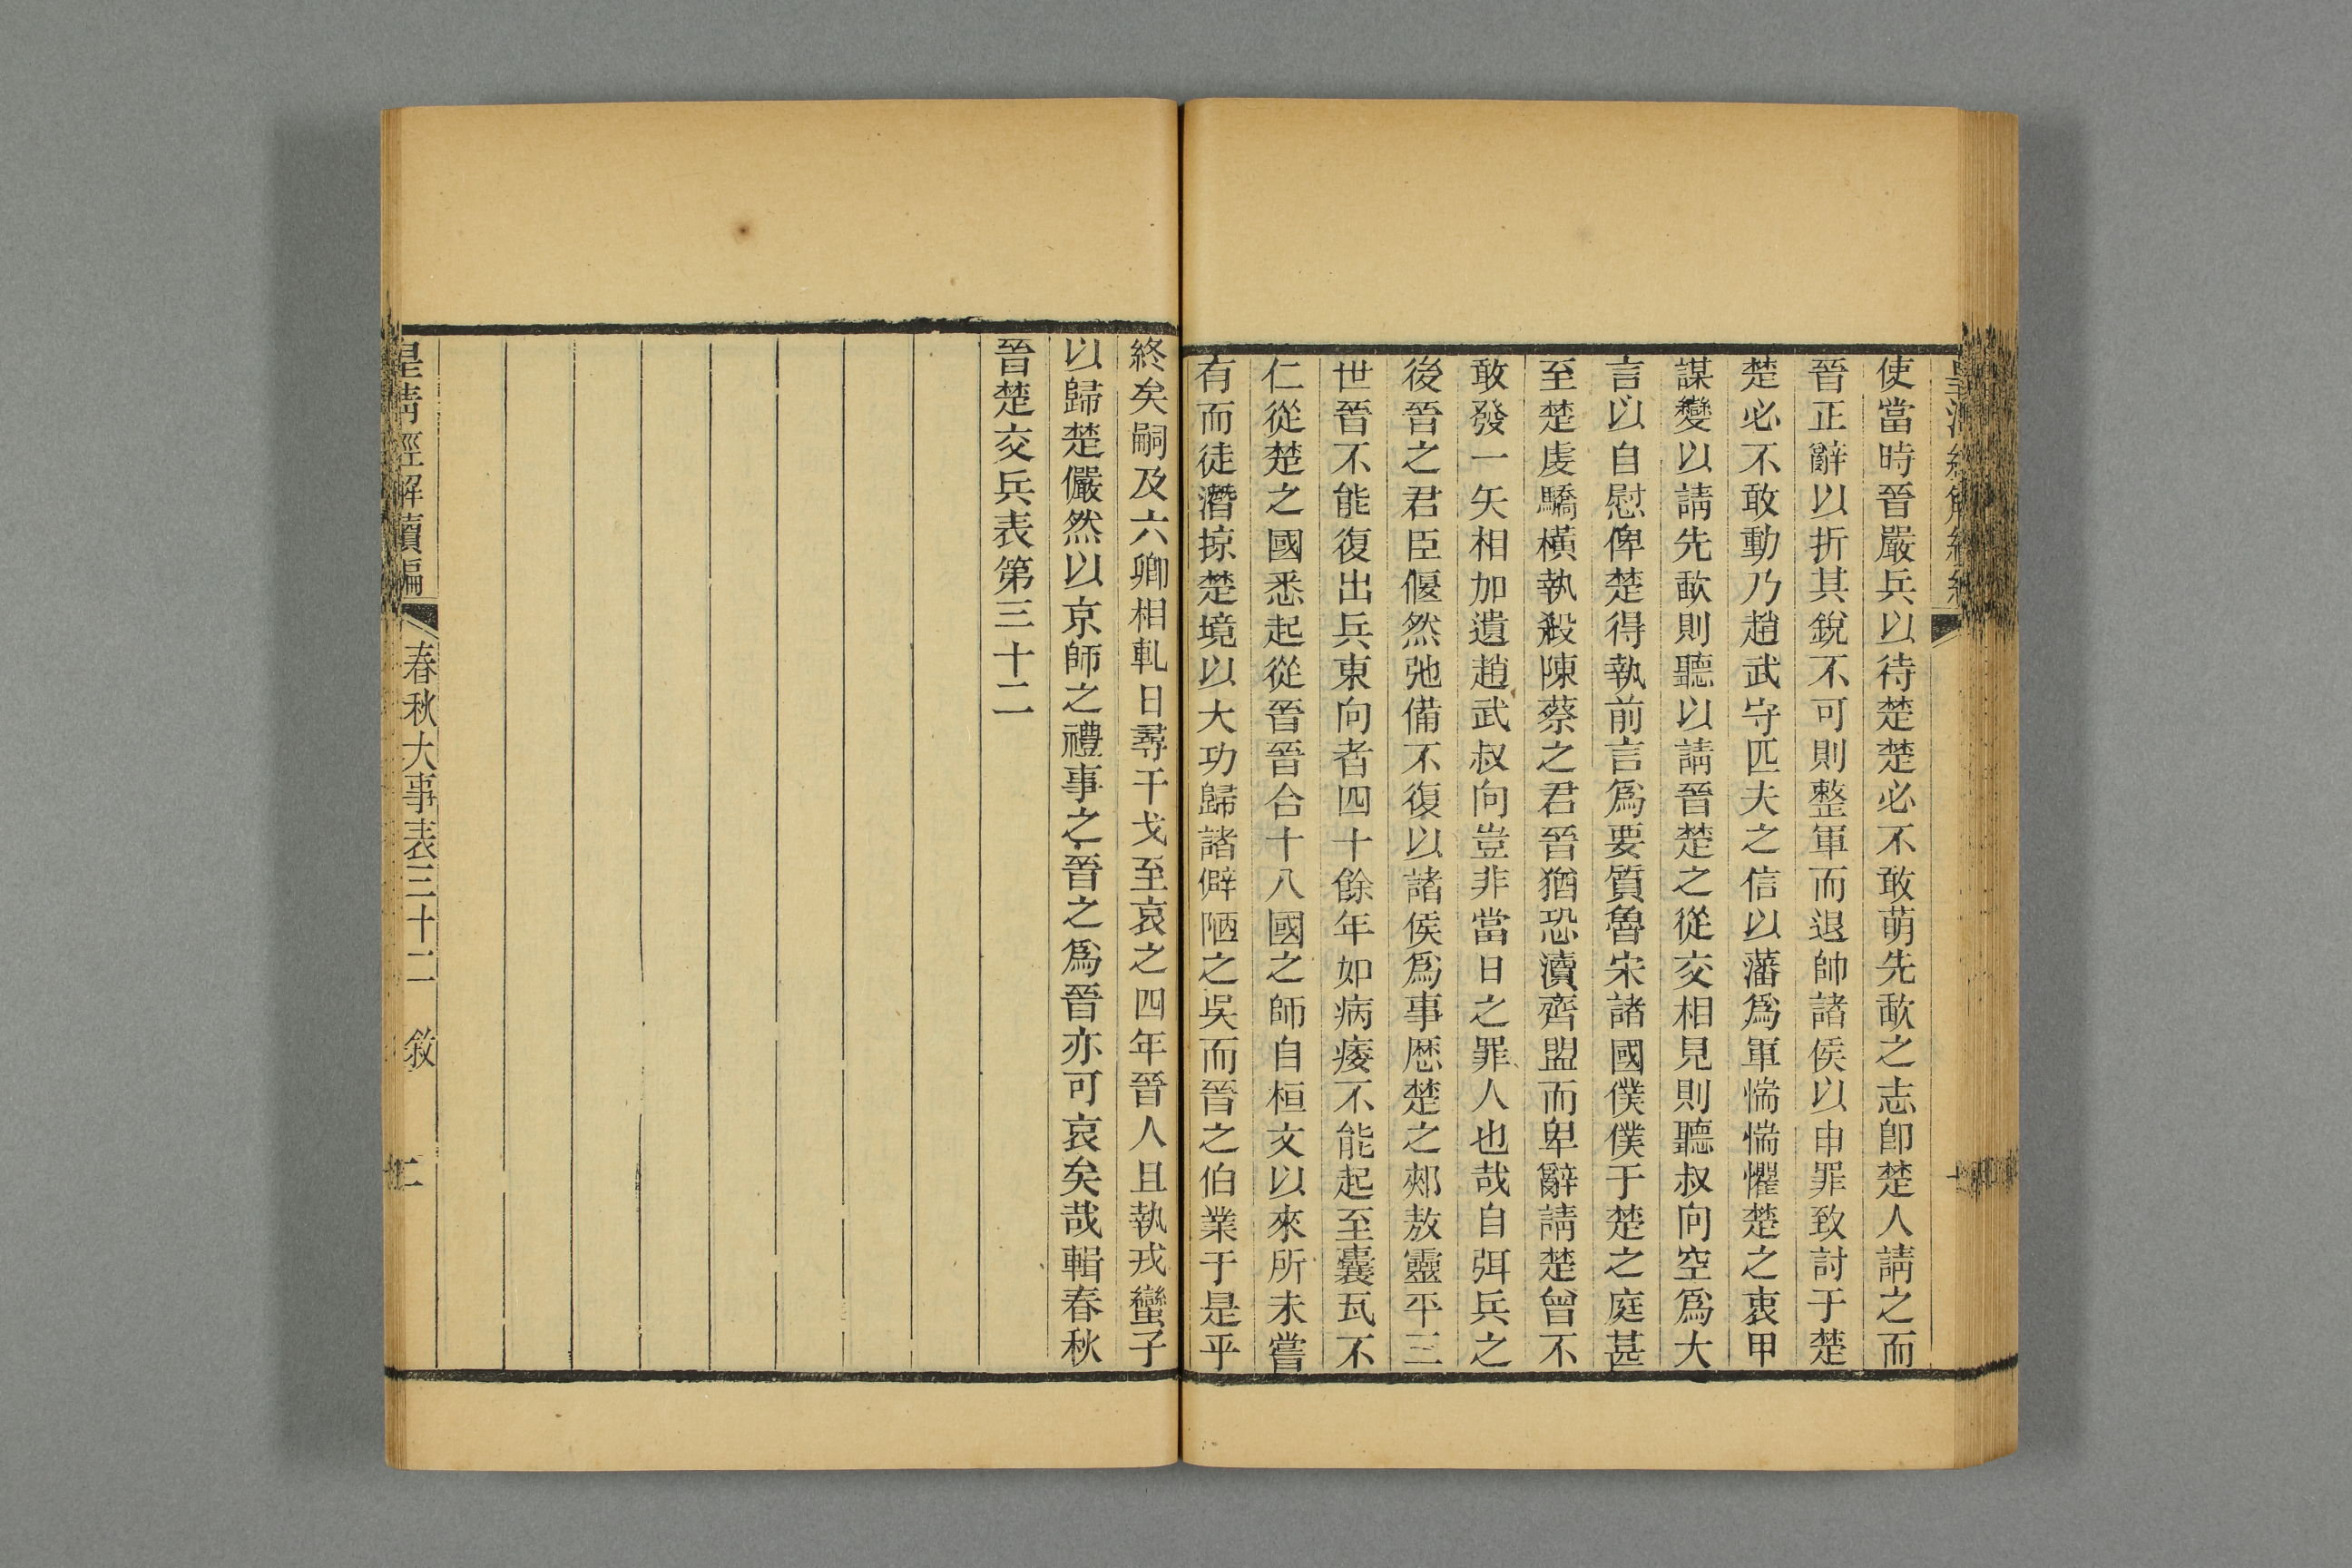 使當時晉嚴兵以待楚楚必不敢萌先歃之志卽楚人請之而
晉正辭以折其銳不可則整軍而退帥諸侯以申罪致討于楚
楚必不敢動乃趙武守匹夫之信以藩爲軍惴惴懼楚之衷甲
謀變以請先歃則聽以請晉楚之從交相見則聽叔向空爲大
言以自慰俾楚得執前言爲要質魯宋諸國僕僕于楚之庭甚
至楚虔驕橫執殺陳蔡之君晉猶恐瀆齊盟而卑辭請楚曾不
敢發一矢相加遺趙武叔向豈非當日之罪人也哉自弭兵之
後晉之君臣偃然弛備不復以諸侯爲事厯楚之郟敖靈平三
世晉不能復出兵東向者四十餘年如病痿不能起至囊瓦不
仁從楚之國悉起從晉晉合十八國之師自桓文以來所未嘗
有而徒潛掠楚境以大功歸諸僻陋之吳而晉之伯業于是乎
終矣嗣及六卿相軋日尋干戈至哀之四年晉人且執戎蠻子
以歸楚儼然以京師之禮事之晉之爲晉亦可哀矣哉輯春秋
晉楚交兵表第三十二
皇清經解續編
春秋大事表三十二 敘
二